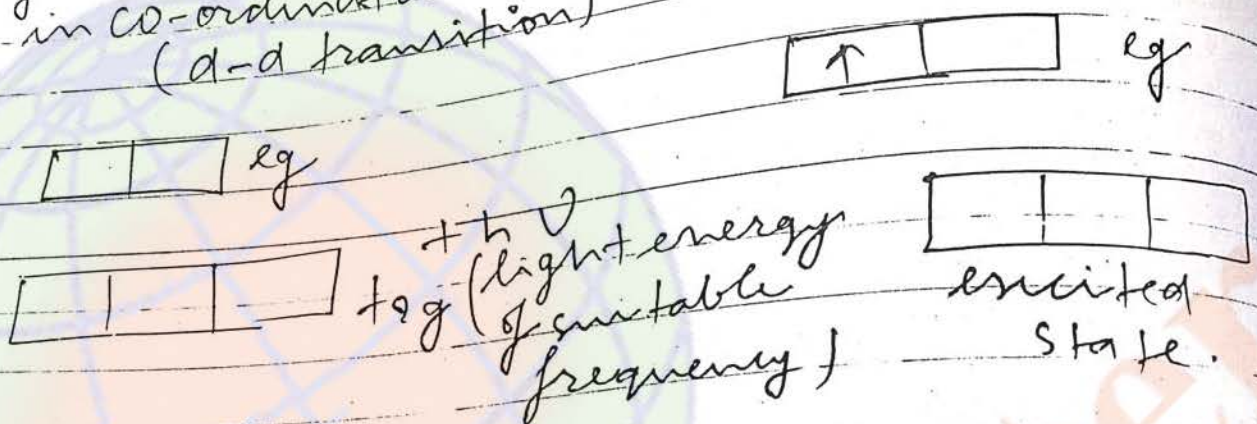 in co-ordinat
(d-d transition)
↑ eg
eg
t2g
+ h υ
(light energy
of suitable
frequency)
excited
state.